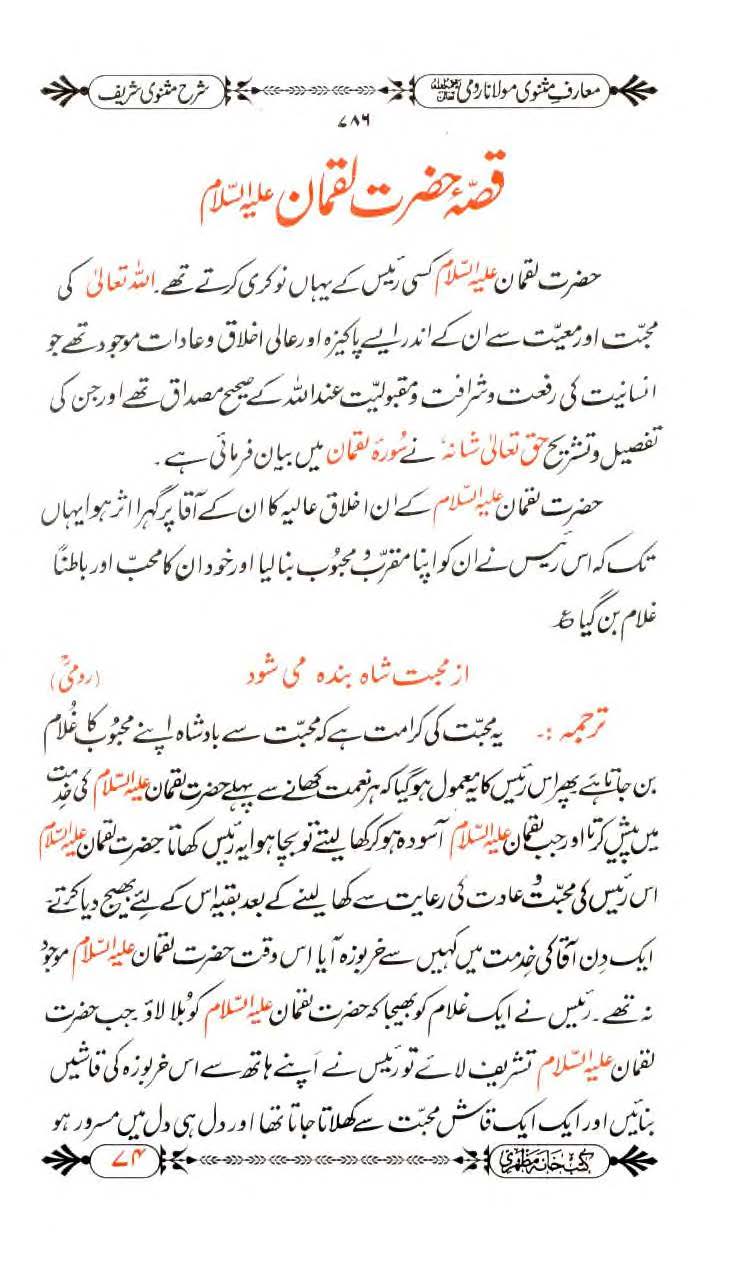 معارفِ مثنوی مولانا رومی رحمۃ اللہ تعالیٰ علیہ
شرح مثنوی شریف
۷۸۶
قصّۂ حضرت لقمان علیہ السّلام
حضرت لقمان علیہ السّلام کسی رئیس کے یہاں نوکری کرتے تھے۔ اللہ تعالیٰ کی
محبّت اور معیّت سے ان کے اندر ایسے پاکیزہ اور عالی اخلاق و عادات موجود تھے جو
انسانیت کی رفعت و شرافت و مقبولیّت عند اللہ کے صحیح مصداق تھے اور جن کی
تفصیل و تشریح حق تعالیٰ شانہٗ نے سُورۂ لقمان میں بیان فرمائی ہے۔
حضرت لقمان علیہ السّلام کے ان اخلاق عالیہ کا ان کے آقا پر گہرا اثر ہوا یہاں
تک کہ اس رئیس نے ان کو اپنا مقرّب و محبُوب بنا لیا اور خود ان کا محبّ اور باطناً
غلام بن گیا ؏
از محبت شاہ بندہ می شود (رومیؒ)
ترجمہ :۔ یہ محبّت کی کرامت ہے کہ محبّت سے بادشاہ اپنے محبُوب کا غُلام
بن جاتا ہے پھر اس رئیس کا یہ معمول ہو گیا کہ ہر نعمت کھانے سے پہلے حضرت لقمان علیہ السّلام کی خدمت
میں پیش کرتا اور جب لقمان علیہ السّلام آسودہ ہو کر کھا لیتے تو بچا ہوا یہ رئیس کھاتا حضرت لقمان علیہ السّلام
اس رئیس کی محبّت و عادت کی رعایت سے کھا لینے کے بعد بقیہ اس کے لئے بھیج دیا کرتے۔
ایک دِن آقا کی خِدمت میں کہیں سے خربوزہ آیا اس وقت حضرت لقمان علیہ السّلام موجود
نہ تھے۔ رئیس نے ایک غلام کو بھیجا کہ حضرت لقمان علیہ السّلام کو بُلا لاؤ۔ جب حضرت
لقمان علیہ السّلام تشریف لائے تو رئیس نے اَپنے ہاتھ سے اس خربوزہ کی قاشیں
بنائیں اور ایک ایک قاش محبّت سے کھلاتا جاتا تھا اور دل ہی دل میں مسرور ہو
کتب خانہ مظہری
۷۴